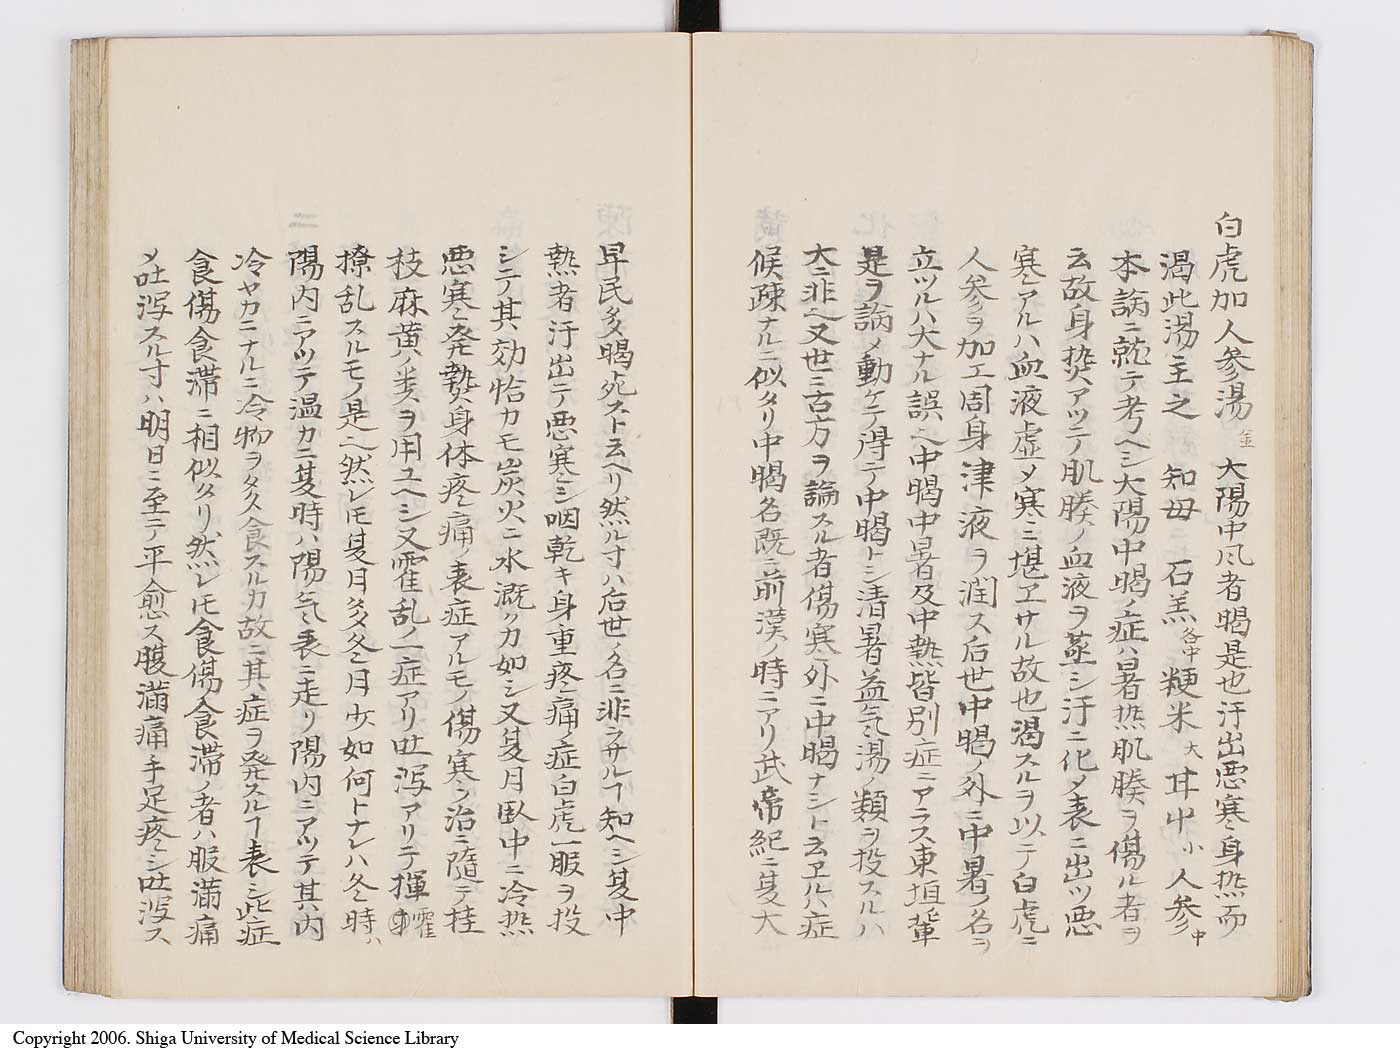 白虎加人参湯 金 大陽中風者暍是也汗出悪寒身热而
渇此湯主之 知母 二 石羔 各中 粳米 大 甘中 小 人参 中
本論ニ就テ考ヘシ大陽中暍ノ症ハ暑热肌腠ヲ傷ル者ヲ
云故身热アツテ肌腠ノ血液ヲ蒸シ汗ニ化メ表ニ出ツ悪
寒アルハ血液虚メ寒ニ堪エサル故也渇スルヲ以テ白虎ニ
人参ヲ加エ周身津液ヲ潤ス后世中暍ノ外ニ中暑ノ名ヲ
立ツルハ大ナル誤ヘ中暍中暑及中熱皆別症ニアラス東垣輩
是ヲ論メ動ケテ得テ中暍トシ清暑益气湯ノ類ヲ投スルハ
大ニ非ヘ又世ニ古方ヲ論スル者傷寒外ニ中暍ナシト云ヱルハ症
候疎ナルニ似タリ中暍名既ニ前漢ノ時ニアリ武帝紀ニ夏大
早民多暍死スト云ヘリ然ル寸ハ后世ノ名ニ非ラサルヿ知ヘシ夏中
熱者汗出テ悪寒シ咽乾キ身重疼痛ノ症白虎一服ヲ投
シテ其効恰カモ炭火ニ水溉ツカ如シ又夏月臥中ニ冷热
悪寒発熱身体疼痛ノ表症アルモノ傷寒ノ治ニ隨テ桂
枝麻黄ノ类ヲ用ユヘシ又霍乱ノ一症アリ吐泻アリテ揮 霍
撩乱スルモノ是ヘ然レ𪜈夏月多冬月少如何トナレハ冬時ハ
陽内ニアツテ温カニ夏時ハ陽气表ニ走リ陽内ニアツテ其内
冷ヤカニナルニ冷物ヲ多食スルカ故ニ其症ヲ発スルヿ表シ此症
食傷食滞ニ相似タリ然レ𪜈食傷食滞ノ者ハ服滿痛
メ吐泻スル寸ハ明日ニ至テ平愈ス腹滿痛手足疼シ吐泻ス
Copyright 2006. Shiga University of Medical Science Library